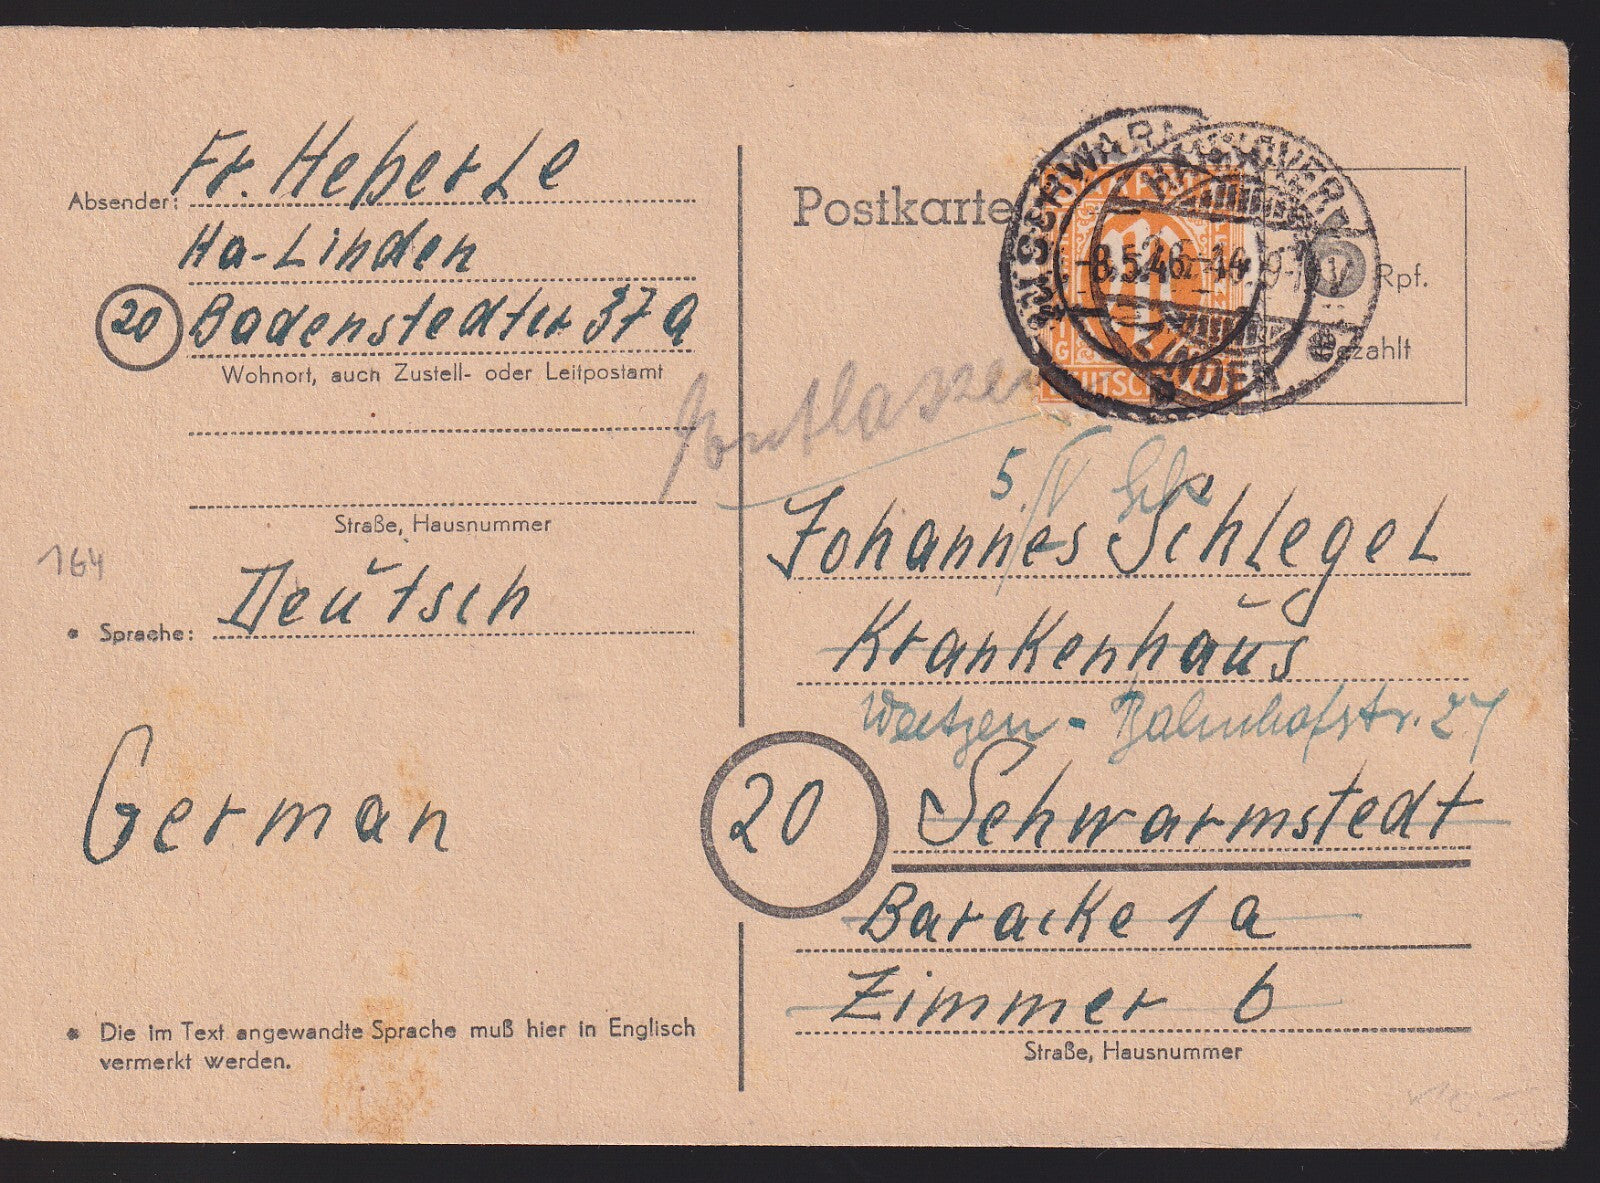 Absender: Fr. Heberle
Ha-Linden
20 Bodenstedter 37 a
Wohnort, auch Zustell- oder Leitpostamt
Straße, Hausnummer
164
* Sprache: Deutsch
German
* Die im Text angewandte Sprache muß hier in Englisch
vermerkt werden.
Postkarte
HANNOVER
LINDEN
Rpf.
bezahlt
entlassen
5/V
Johannes Schlegel
Krankenhaus
Bahnhofstr. 27
20 Schwarmstedt
Baracke 1 a
Zimmer 6
Straße, Hausnummer